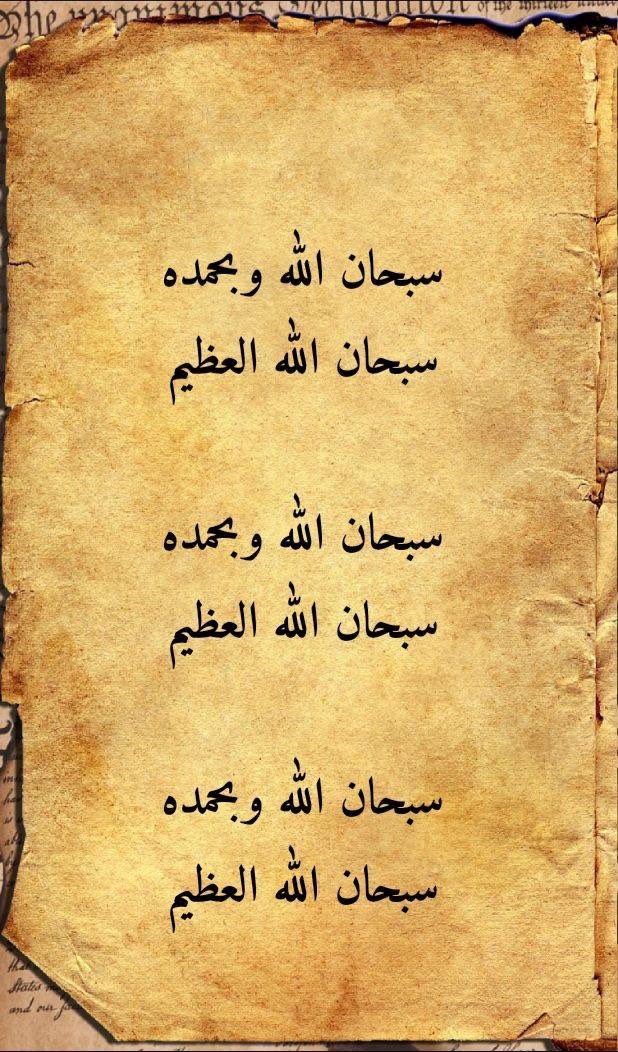 The unanimous Declaration of the thirteen unite
سبحان الله وبحمده
سبحان الله العظيم
سبحان الله وبحمده
سبحان الله العظيم
سبحان الله وبحمده
سبحان الله العظيم
that
States
and our